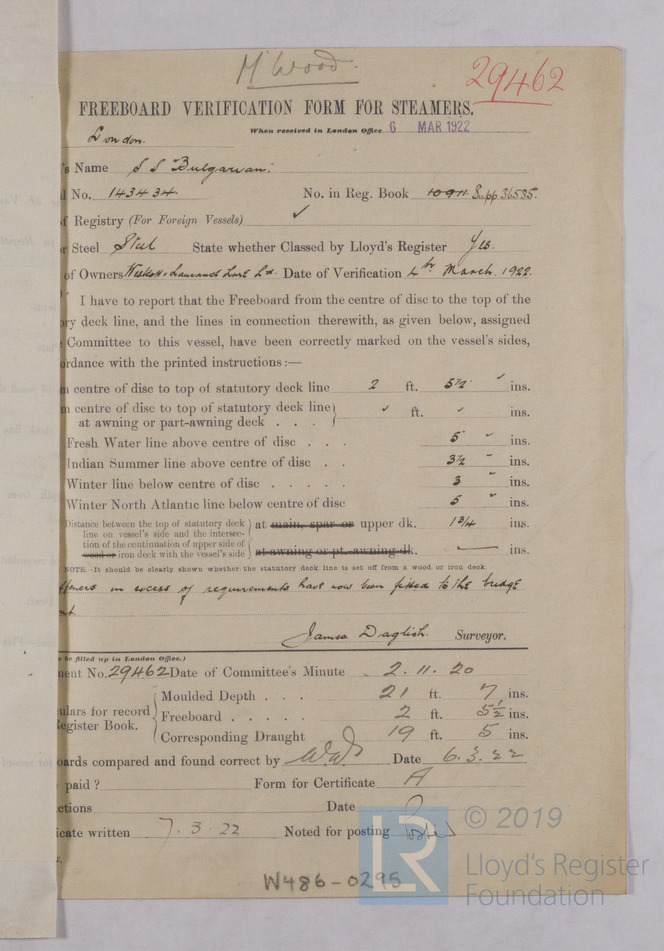 Mr Wood.
29462
FREEBOARD VERIFICATION FORM FOR STEAMERS.
When received in London Office 6 MAR 1922
London.
's Name S S "Bulgarian"
d No. 143434. No. in Reg. Book 10911. Supp 36535.
f Registry (For Foreign Vessels) ✓
r Steel Steel State whether Classed by Lloyd's Register Yes.
of Owners Westcott & Laurance Line Ld. Date of Verification 4th March. 1922.
I have to report that the Freeboard from the centre of disc to the top of the
ry deck line, and the lines in connection therewith, as given below, assigned
Committee to this vessel, have been correctly marked on the vessel's sides,
ordance with the printed instructions :—
m centre of disc to top of statutory deck line 2 ft. 5½ ✓ ins.
m centre of disc to top of statutory deck line
at awning or part-awning deck . . . ✓ ft. ✓ ins.
Fresh Water line above centre of disc . . . 5 ✓ ins.
Indian Summer line above centre of disc . . 3½ ins.
Winter line below centre of disc . . . . . 3 ins.
Winter North Atlantic line below centre of disc 5 ✓ ins.
Distance between the top of statutory deck
line on vessel's side and the intersec-
tion of the continuation of upper side of
wood or iron deck with the vessel's side
at main, spar or upper dk. 1¾ ins.
at awning or pt. awning dk. — ins.
NOTE.—It should be clearly shown whether the statutory deck line is set off from a wood or iron deck.
in excess of requirements have now been fitted to the bridge
nt.
James Daglish. Surveyor.
be filled up in London Office.)
ment No. 29462 Date of Committee's Minute 2. 11. 20
ulars for record
Register Book.
Moulded Depth . . . 21 ft. 7 ins.
Freeboard . . . . . 2 ft. 5½ ins.
Corresponding Draught 19 ft. 5 ins.
oards compared and found correct by Date 6. 3. 22
paid ? Form for Certificate A
ctions Date
icate written 7. 3. 22 Noted for posting
W486-0295
LR
© 2019
Lloyd's Register
Foundation